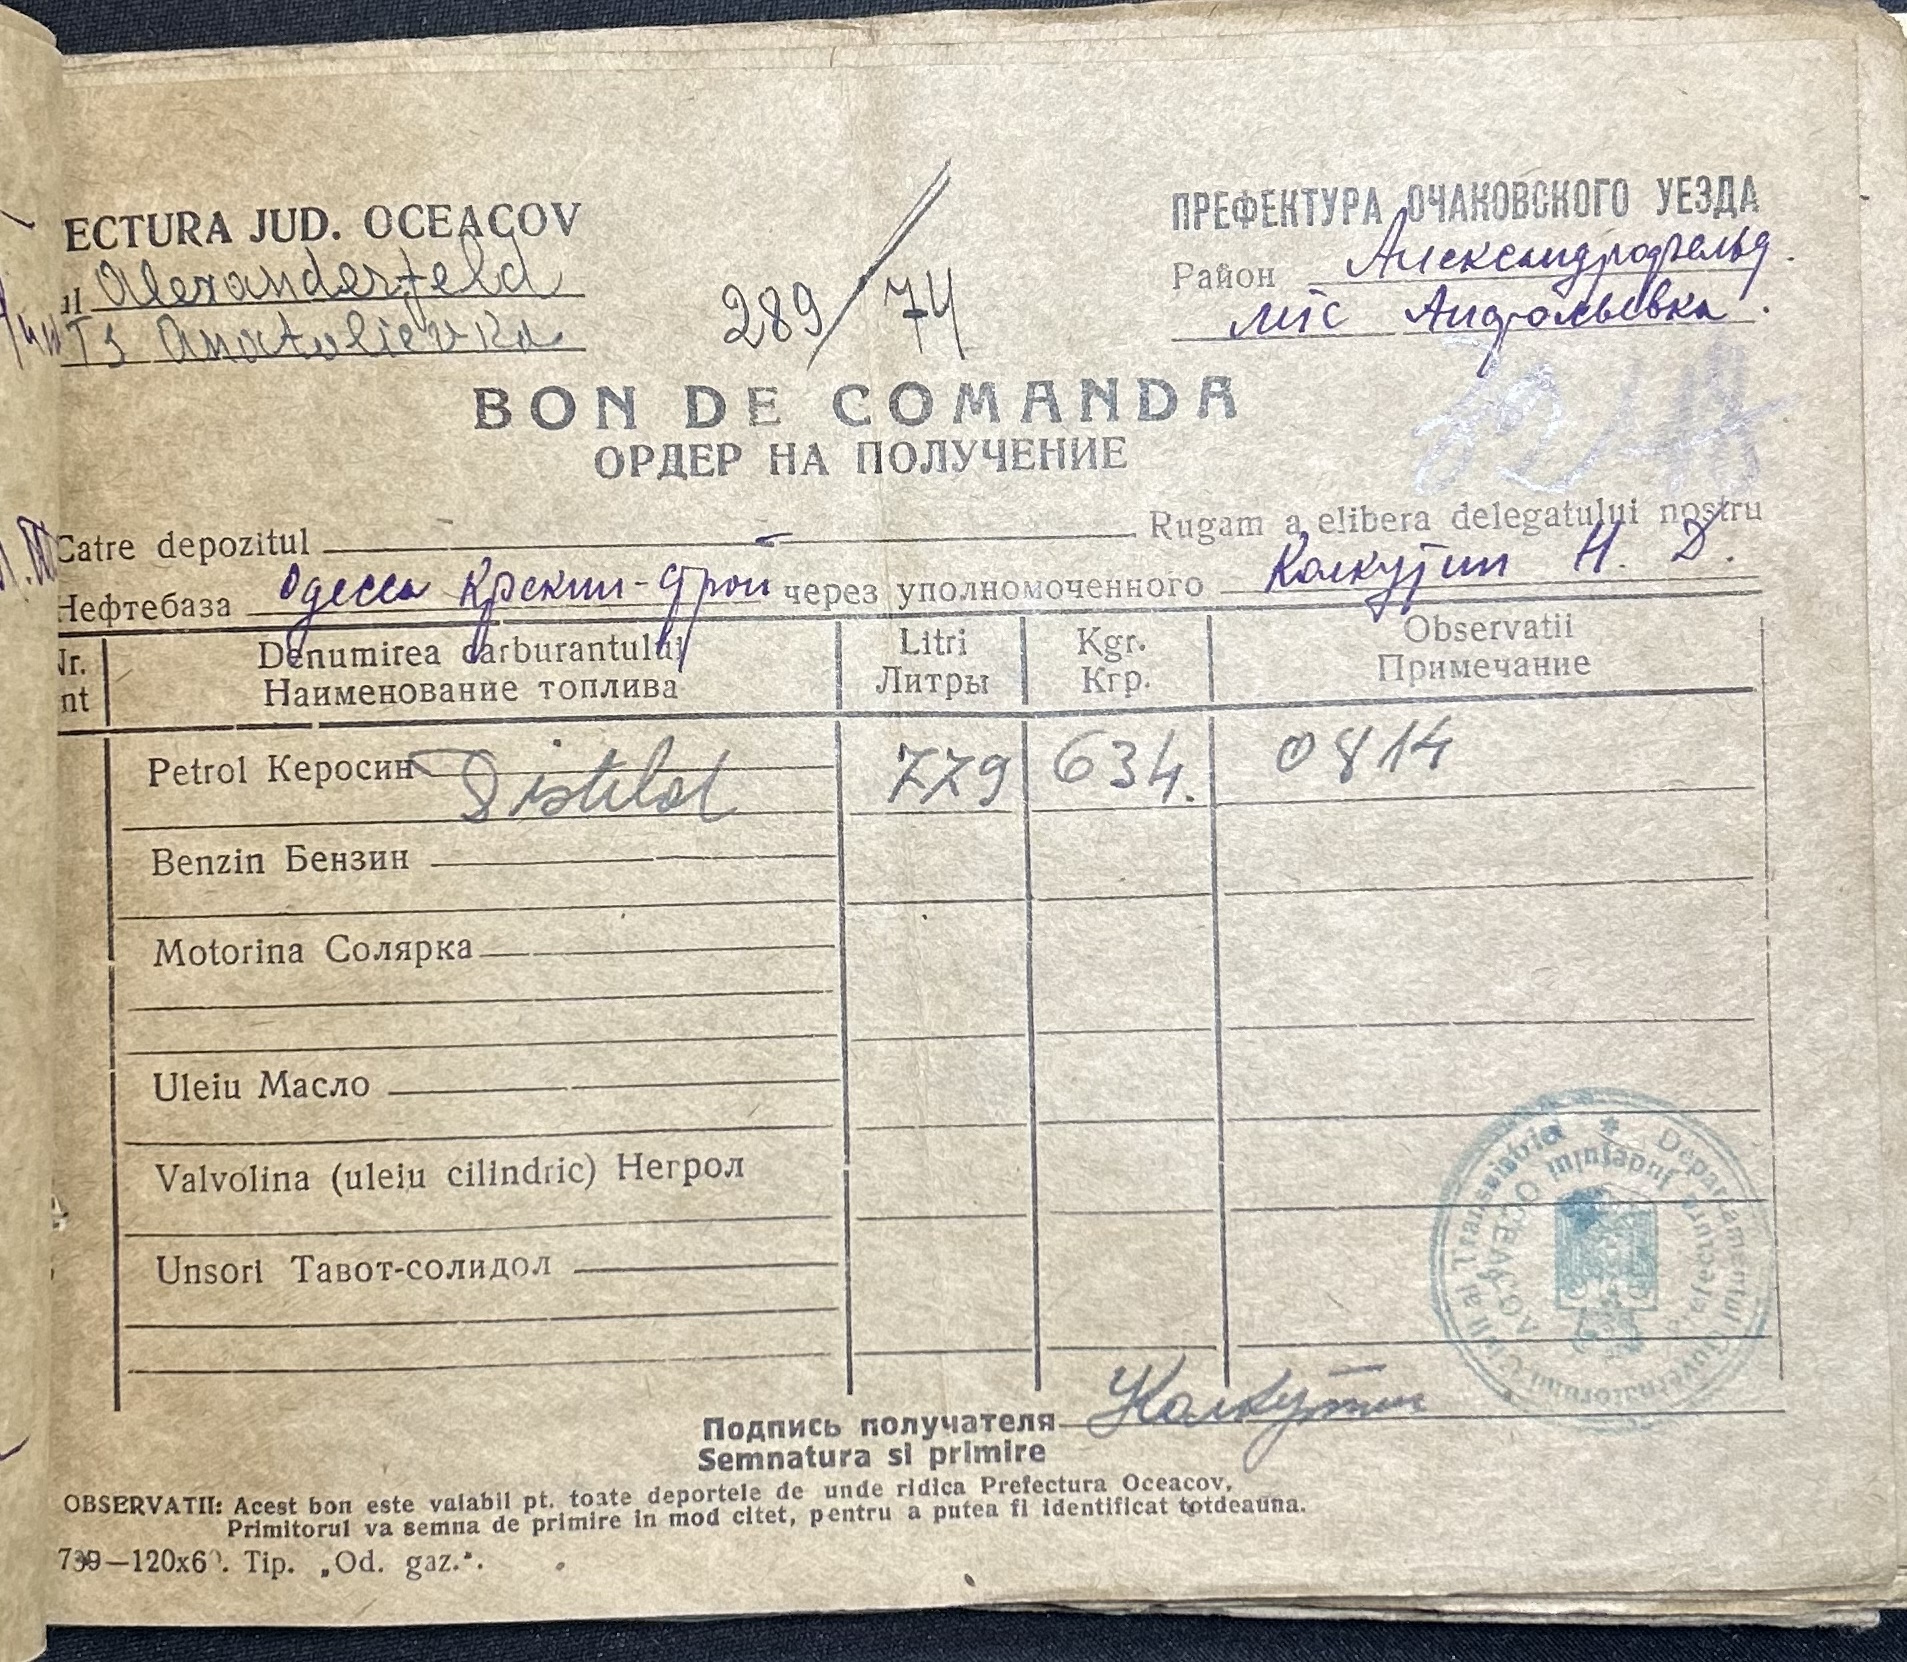 ECTURA JUD. OCEACOV
ПРЕФЕКТУРА ОЧАКОВСКОГО УЕЗДА
Alexanderfeld
Район Александрфельд.
289/74
TS Anatolievka
мтс
BON DE COMANDA
ОРДЕР НА ПОЛУЧЕНИЕ
Catre depozitul Rugam a elibera delegatului nostru
Нефтебаза Одесса через уполномоченного Калкутин Н. Д.
Nr. Denumirea carburantului Litri Kgr. Observatii
nt Наименование топлива Литры Кгр. Примечание
Petrol Керосин Distilat 779 634. 0814
Benzin Бензин
Motorina Солярка
Uleiu Масло
Valvolina (uleiu cilindric) Негрол
Unsori Тавот-солидол
Departamentul Guvernatorului Civil al Transnistriei
Prefectura Județului
OCEACOV
Подпись получателя Калкутин
Semnatura si primire
OBSERVATII: Acest bon este valabil pt. toate deportele de unde ridica Prefectura Oceacov,
Primitorul va semna de primire in mod citet, pentru a putea fi identificat totdeauna.
Tip. „Od. gaz.".